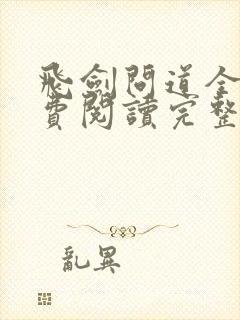 飛劍問道全
費閱讀完整
亂異